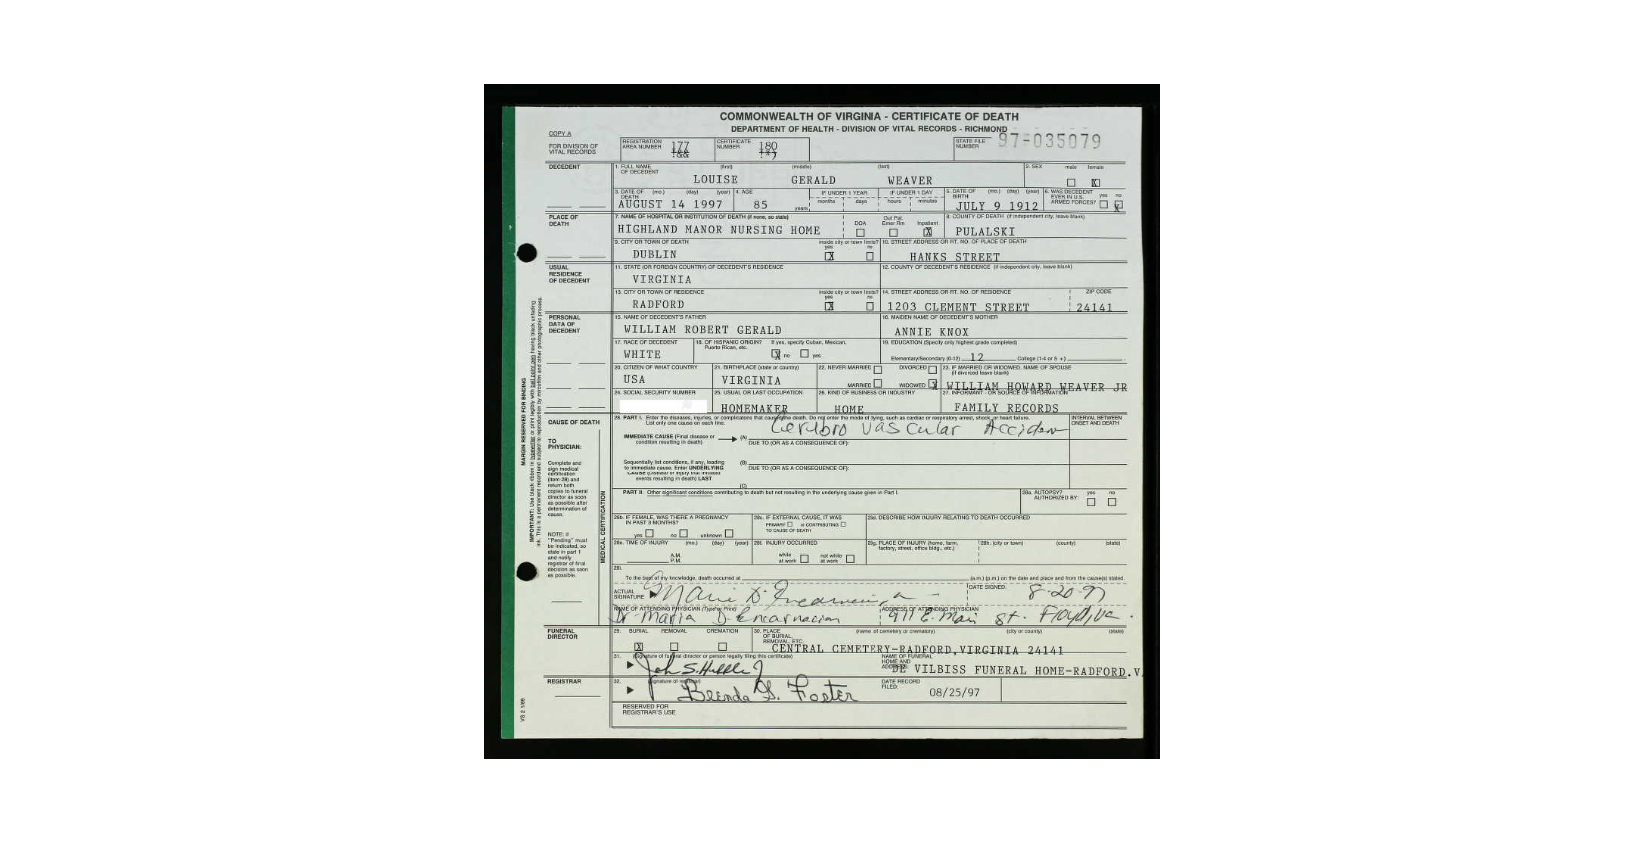 COMMONWEALTH OF VIRGINIA - CERTIFICATE OF DEATH
DEPARTMENT OF HEALTH - DIVISION OF VITAL RECORDS - RICHMOND
COPY A
FOR DIVISION OF VITAL RECORDS
REGISTRATION AREA NUMBER 177
CERTIFICATE NUMBER 180
STATE FILE NUMBER 97-035079
DECEDENT
1. FULL NAME OF DECEDENT (first) (middle) (last)
LOUISE GERALD WEAVER
2. SEX male female X
3. DATE OF DEATH (mo.) (day) (year)
AUGUST 14 1997
4. AGE 85 years
IF UNDER 1 YEAR months days
IF UNDER 1 DAY hours minutes
5. DATE OF BIRTH (mo.) (day) (year)
JULY 9 1912
6. WAS DECEDENT EVER IN U.S. ARMED FORCES? yes no X
PLACE OF DEATH
7. NAME OF HOSPITAL OR INSTITUTION OF DEATH (if none, so state)
HIGHLAND MANOR NURSING HOME
DOA Out Pat. Emer Rm Inpatient X
8. COUNTY OF DEATH (if independent city, leave blank)
PULALSKI
9. CITY OR TOWN OF DEATH
DUBLIN
inside city or town limits? yes X no
10. STREET ADDRESS OR RT. NO. OF PLACE OF DEATH
HANKS STREET
USUAL RESIDENCE OF DECEDENT
11. STATE (OR FOREIGN COUNTRY) OF DECEDENT'S RESIDENCE
VIRGINIA
12. COUNTY OF DECEDENT'S RESIDENCE (if independent city, leave blank)
13. CITY OR TOWN OF RESIDENCE
RADFORD
inside city or town limits? yes X no
14. STREET ADDRESS OR RT. NO. OF RESIDENCE
1203 CLEMENT STREET
ZIP CODE
24141
PERSONAL DATA OF DECEDENT
15. NAME OF DECEDENT'S FATHER
WILLIAM ROBERT GERALD
16. MAIDEN NAME OF DECEDENT'S MOTHER
ANNIE KNOX
17. RACE OF DECEDENT
WHITE
18. OF HISPANIC ORIGIN? If yes, specify Cuban, Mexican, Puerto Rican, etc.
X no yes
19. EDUCATION (Specify only highest grade completed)
Elementary/Secondary (0-12) 12 College (1-4 or 5 +)
20. CITIZEN OF WHAT COUNTRY
USA
21. BIRTHPLACE (state or country)
VIRGINIA
22. NEVER MARRIED DIVORCED
MARRIED WIDOWED X
23. IF MARRIED OR WIDOWED, NAME OF SPOUSE (if divorced leave blank)
WILLIAM HOWARD WEAVER JR
24. SOCIAL SECURITY NUMBER
25. USUAL OR LAST OCCUPATION
HOMEMAKER
26. KIND OF BUSINESS OR INDUSTRY
HOME
27. INFORMANT - OR SOURCE OF INFORMATION
FAMILY RECORDS
CAUSE OF DEATH
28. PART I. Enter the diseases, injuries, or complications that caused the death. Do not enter the mode of dying, such as cardiac or respiratory arrest, shock, or heart failure. List only one cause on each line.
INTERVAL BETWEEN ONSET AND DEATH
IMMEDIATE CAUSE (Final disease or condition resulting in death)
(A) Cerebro Vascular Acciden
DUE TO (OR AS A CONSEQUENCE OF):
Sequentially list conditions, if any, leading to immediate cause. Enter UNDERLYING CAUSE (Disease or injury that initiated events resulting in death) LAST
(B)
DUE TO (OR AS A CONSEQUENCE OF):
(C)
TO PHYSICIAN:
Complete and sign medical certification (item 28) and return both copies to funeral director as soon as possible after determination of cause.
NOTE: If "Pending" must be indicated, so state in part I and notify registrar of final decision as soon as possible.
MEDICAL CERTIFICATION
PART II. Other significant conditions contributing to death but not resulting in the underlying cause given in Part I.
28a. AUTOPSY? AUTHORIZED BY: yes no
28b. IF FEMALE, WAS THERE A PREGNANCY IN PAST 3 MONTHS?
yes no unknown
28c. IF EXTERNAL CAUSE, IT WAS
PRIMARY or CONTRIBUTING TO CAUSE OF DEATH
28d. DESCRIBE HOW INJURY RELATING TO DEATH OCCURRED
28e. TIME OF INJURY (mo.) (day) (year)
A.M.
P.M.
28f. INJURY OCCURRED
while at work not while at work
28g. PLACE OF INJURY (home, farm, factory, street, office bldg., etc.)
28h. (city or town) (county) (state)
28i.
To the best of my knowledge, death occurred at (a.m.) (p.m.) on the date and place and from the cause(s) stated.
ACTUAL SIGNATURE
DATE SIGNED: 8-20-97
NAME OF ATTENDING PHYSICIAN (Type or Print)
Dr Maria D Encarnacion
ADDRESS OF ATTENDING PHYSICIAN
911 E. Main St. Floyd, Va.
FUNERAL DIRECTOR
29. BURIAL REMOVAL CREMATION
X
30. PLACE OF BURIAL, REMOVAL, ETC. (name of cemetery or crematory) (city or county) (state)
CENTRAL CEMETERY-RADFORD, VIRGINIA 24141
31. (signature of funeral director or person legally filing this certificate)
NAME OF FUNERAL HOME AND ADDRESS
DE VILBISS FUNERAL HOME-RADFORD.V
REGISTRAR
32. (signature of registrar)
Brenda G. Foster
DATE RECORD FILED:
08/25/97
RESERVED FOR REGISTRAR'S USE
VS 2 1/89
MARGIN RESERVED FOR BINDING